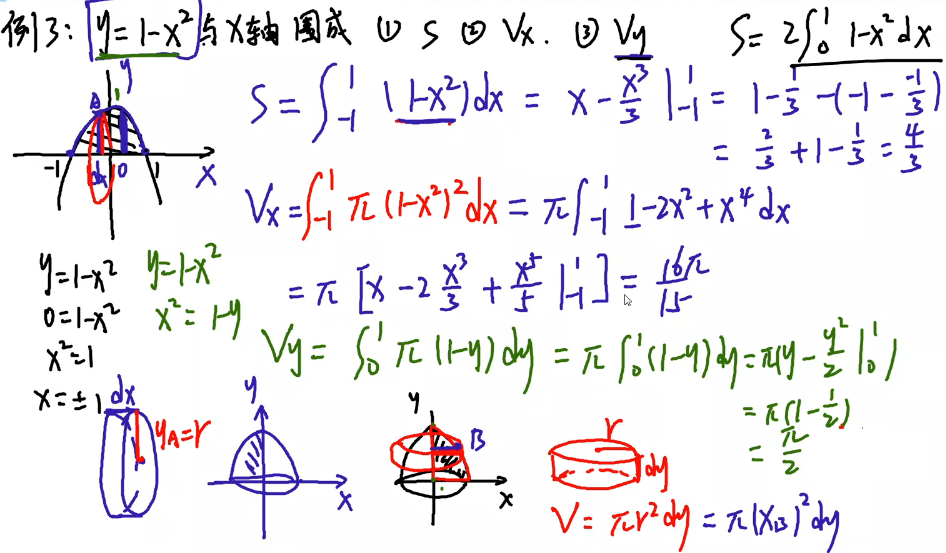 例3: y=1-x² 与x轴围成 ① S ② Vx. ③ Vy
S= 2∫₀¹ 1-x² dx
S = ∫₋₁¹ (1-x²)dx = x - x³/3 |₋₁¹ = 1 - 1/3 -(-1 - -1/3)
= 2/3 + 1 - 1/3 = 4/3
y
1
A
-1 dx 0 1 x
Vx = ∫₋₁¹ π(1-x²)²dx = π∫₋₁¹ 1-2x²+x⁴ dx
= π [x - 2 x³/3 + x⁵/5 |₋₁¹] = 16π/15
y=1-x² y=1-x²
0=1-x² x²= 1-y
x²=1
x=±1
Vy = ∫₀¹ π(1-y)dy = π∫₀¹(1-y)dy = π(y - y²/2 |₀¹)
= π(1 - 1/2)
= π/2
dx
yA=r
y
x
y
B
x
r
dy
V= πr²dy = π(xB)²dy